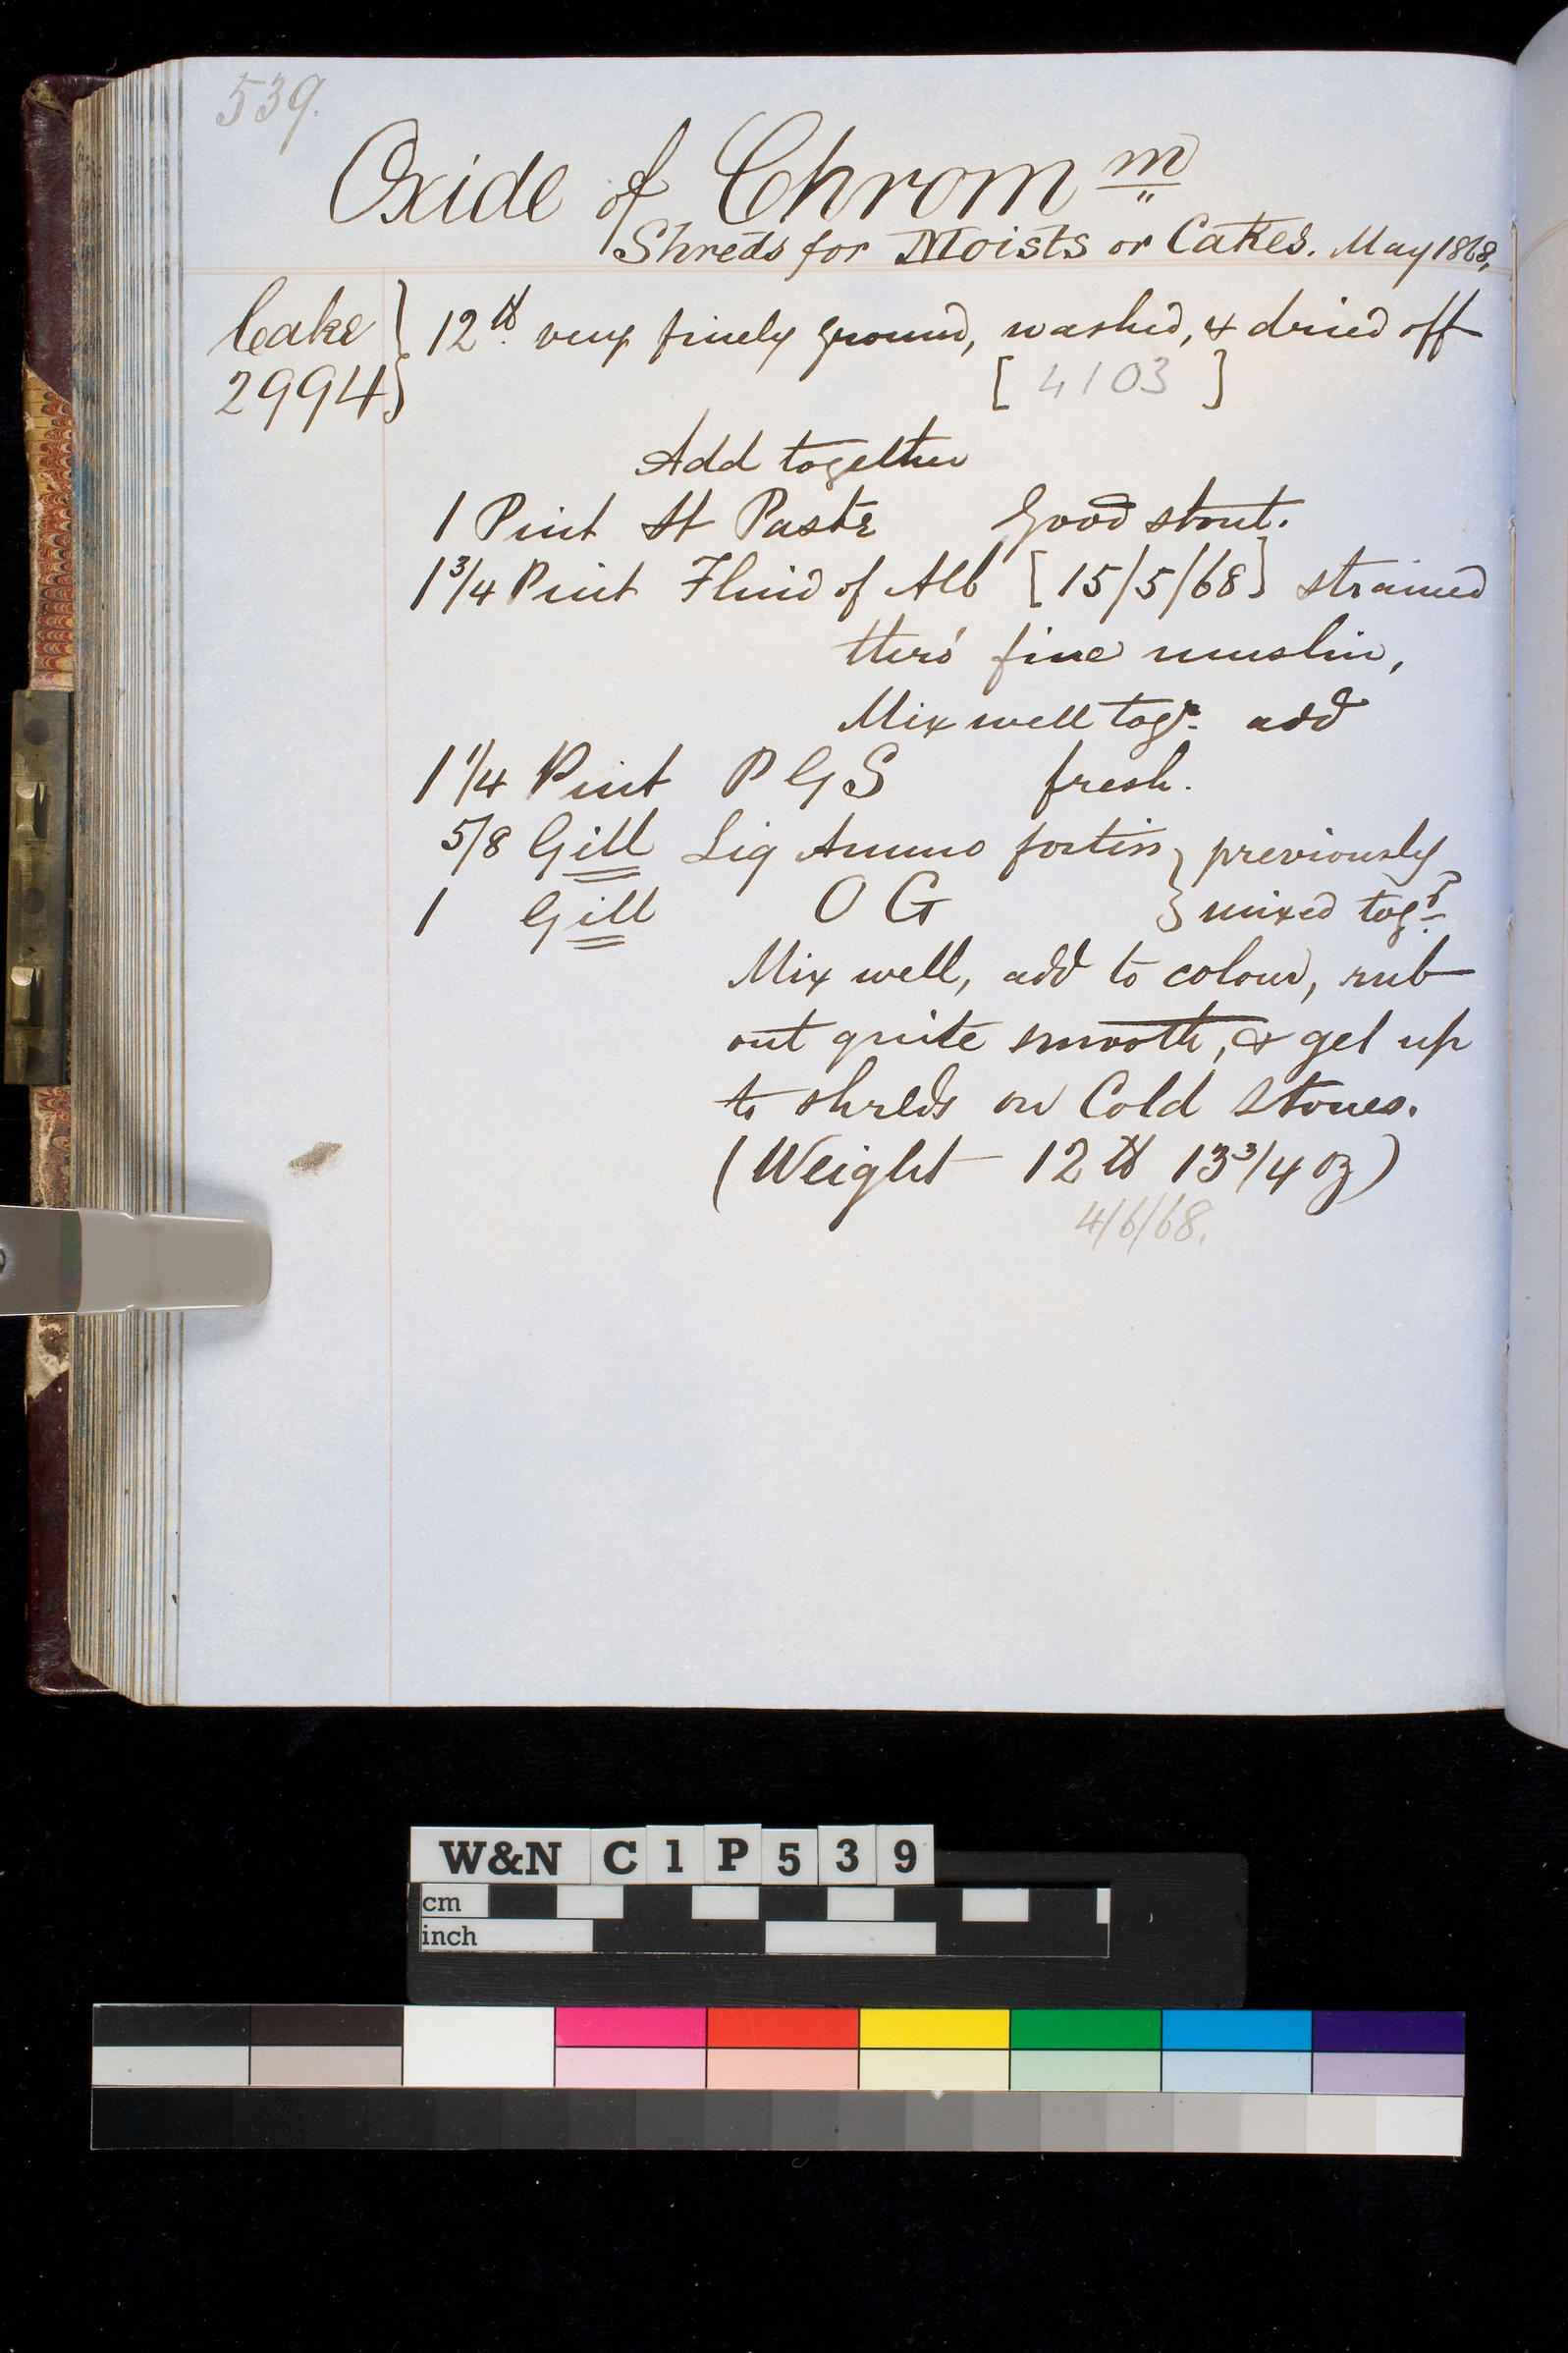 539.
Oxide of Chrom m
Shreds for Moists or Cakes. May 1868,
Cake } 12 lb very finely ground, washed, & dried off
2994 } [ 4103 ]
Add together
1 Pint St Paste Good stout.
1 3/4 Pint Fluid of Alb [15/5/68] strained
thro' fine muslin,
Mix well togr. add
1 1/4 Pint P G S fresh.
5/8 Gill Liq Ammo fortiss } previously
1 Gill O G } mixed togr.
Mix well, add to colour, rub
out quite smooth, & get up
to shreds on Cold Stones.
(Weight 12 lb 13 3/4 oz)
4/6/68.
W&N C 1 P 5 3 9
cm
inch